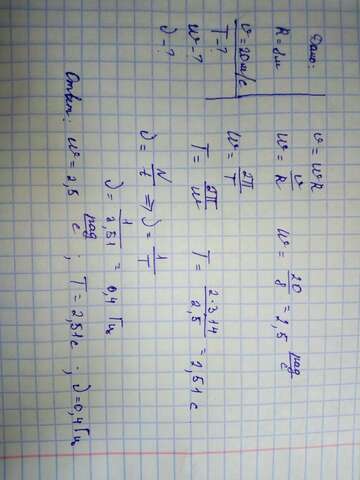 Дано:
R = 8 м
υ = 20 м/с
T - ?
w - ?
ν - ?
υ = wR
w = υ/R w = 20/8 = 2,5 рад/с
w = 2π/T
T = 2π/w T = 2·3,14/2,5 = 2,51 с
ν = N/t => ν = 1/T
ν = 1/2,51 = 0,4 Гц
Ответ: w = 2,5 рад/с ; T = 2,51 с ; ν = 0,4 Гц